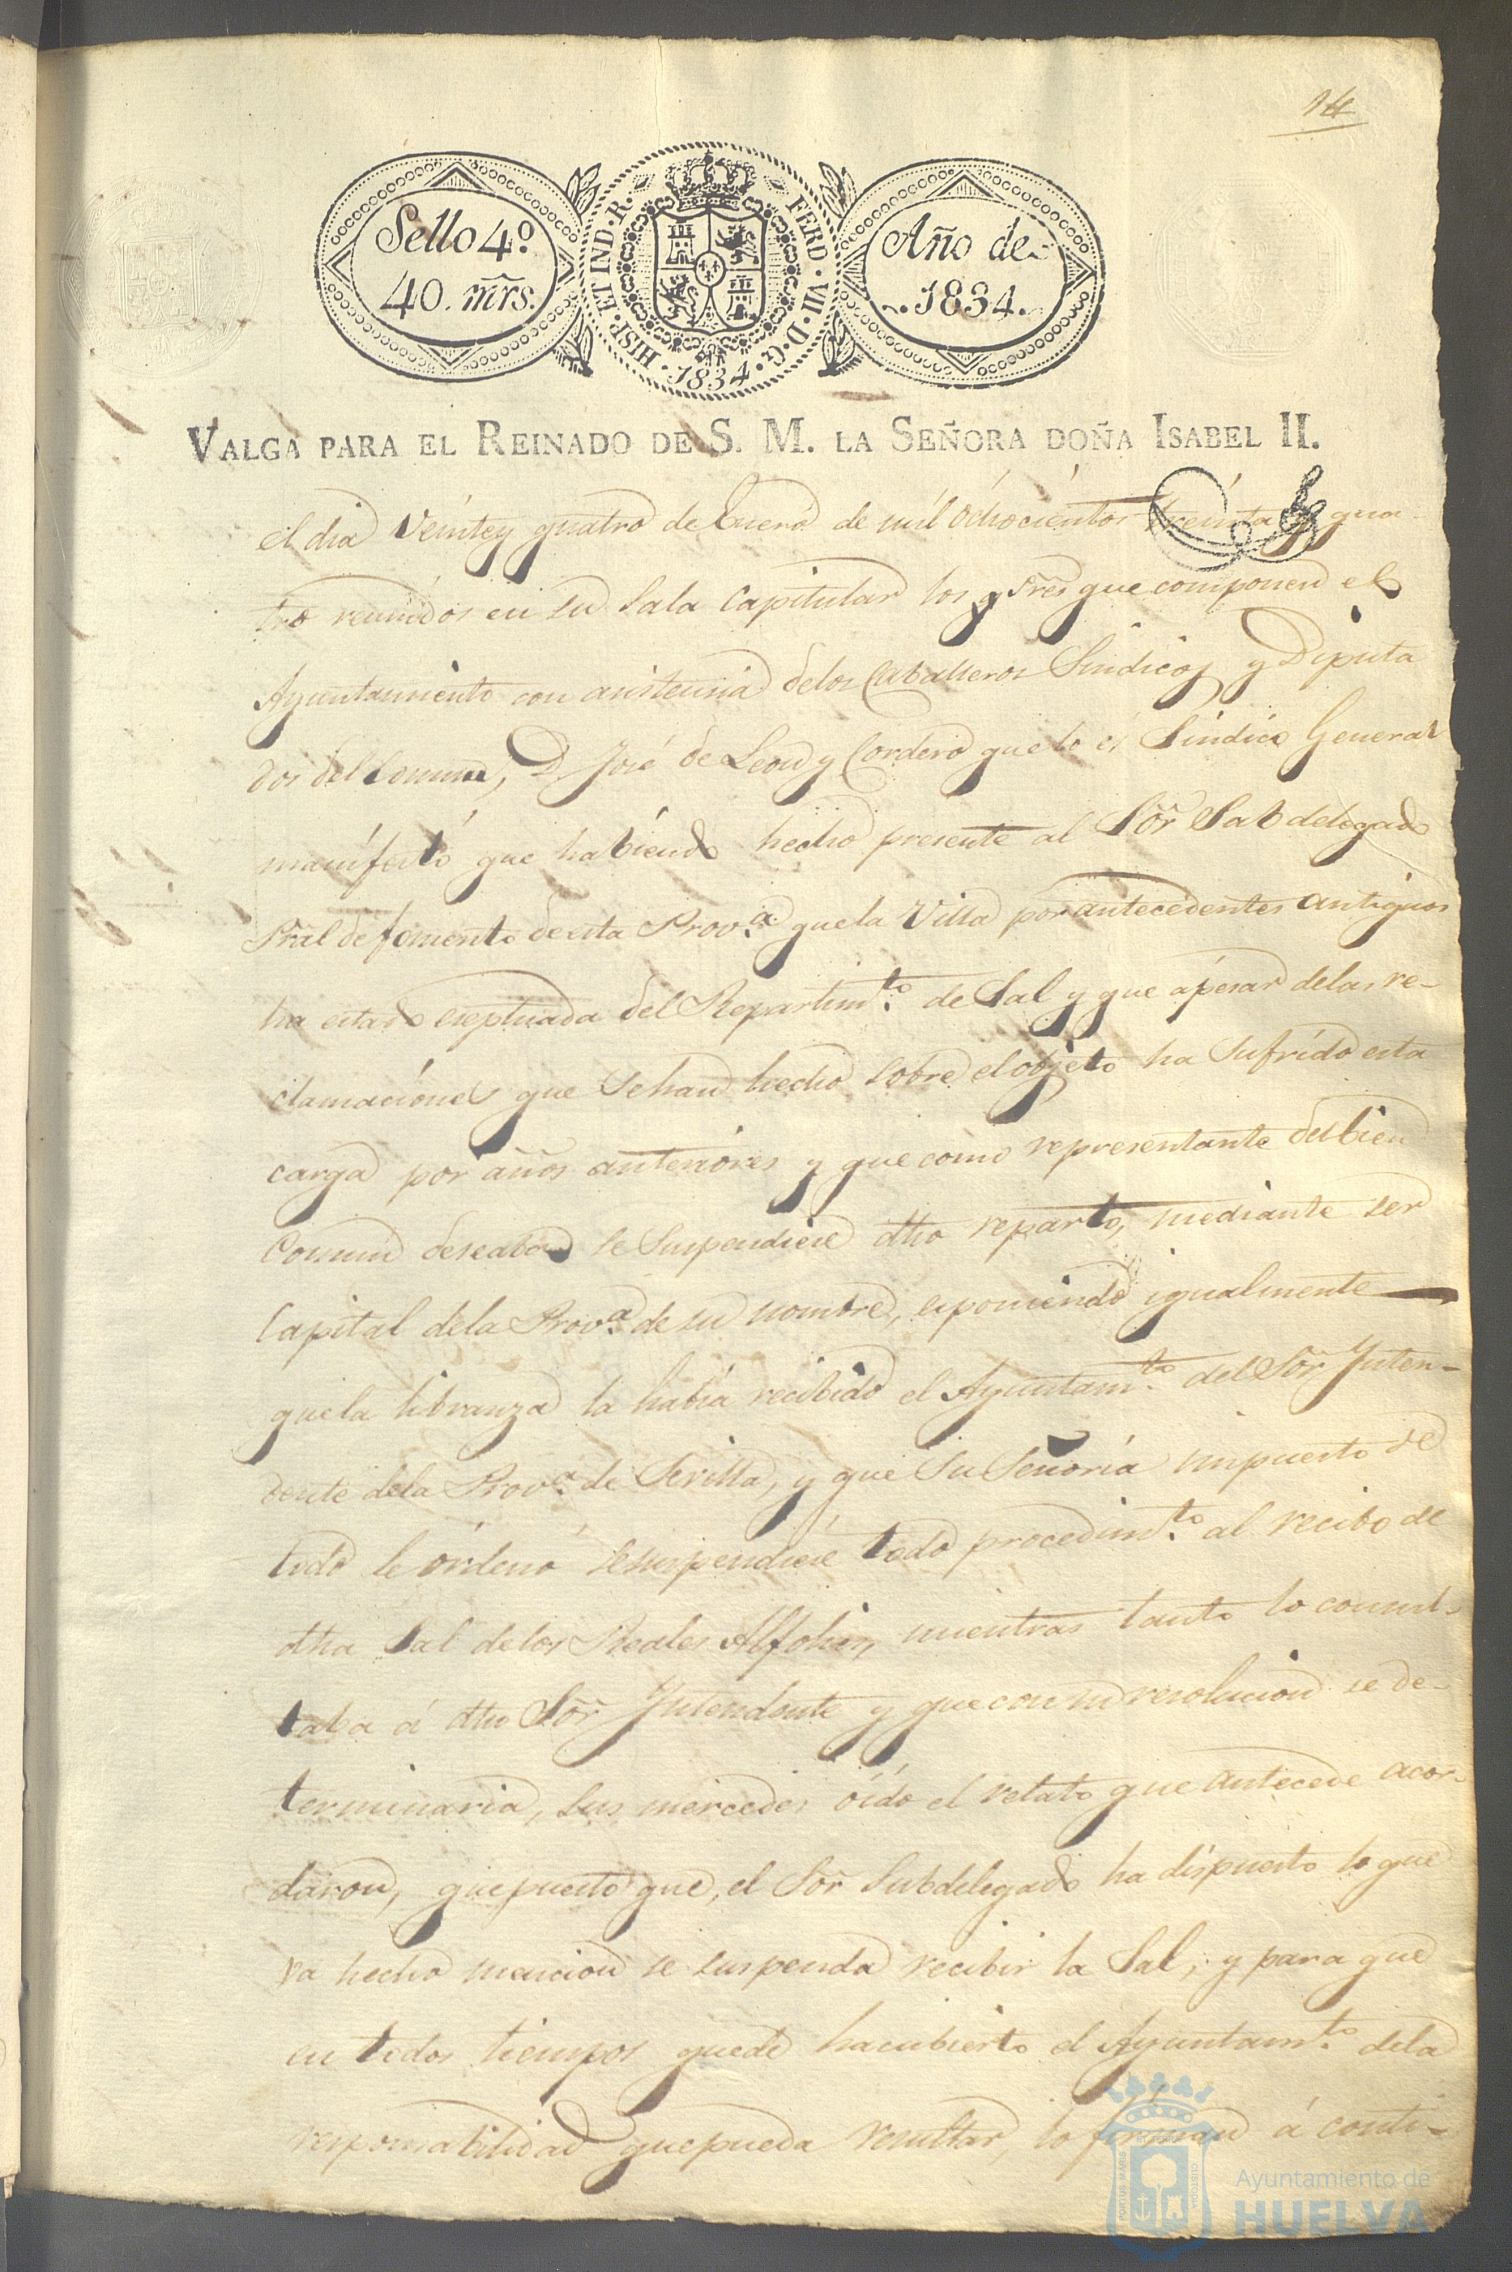 14
Sello 4º
40. mrs.
HISP. ET IND. R. FERD. VII. D. G. 1834.
Año de
1834.
VALGA PARA EL REINADO DE S. M. LA SEÑORA DOÑA ISABEL II.
el dia Veintey quatro de Enero de mil ochocientos treinta y qua
tro reunidos en su Sala Capitular los Sres que componen el
Ayuntamiento con asistencia delos Caballeros Sindicos y Diputa
dos del Comun, D. José de Leon y Cordero que lo es Sindico General
manifestó que habiendo hecho presente al Sõr Subdelegado
Pral de fomento de esta Prov.ª que la Villa por antecedentes antiguos
ha estado exeptuada del Repartim.to de Sal y que apesar delas re-
clamaciones que sehan hecho sobre el objeto ha sufrido esta
carga por años anteriores y que como representante del bien
Comun deseaba se suspendiese dho reparto, mediante ser
Capital dela Prov.ª de su nombre, esponiendo igualmente
quela libranza la habia recibido el Ayuntam.to del Sõr Inten-
dente dela Prov.ª de Sevilla, y que Su Señoría impuesto de
todo le órdenó sesuspendiese todo procedim.to al recibo de
dha Sal delos Reales Alfolies, mientras tanto lo consul-
taba á dho Sõr Intendente y que con su resolucion se de-
terminaria, sus mercedes oído el relato que antecede acor-
daron, quepuesto que, el Sõr Subdelegado ha dispuesto lo que
va hecho mencion se suspenda recibir la Sal, y para que
en todos tiempos quede hacubierto el Ayuntam.to dela
responsabilidad quepueda resultar, lo firman á conti-
PORTUS MARIS ET TERRAE CUSTODIA
Ayuntamiento de
HUELVA